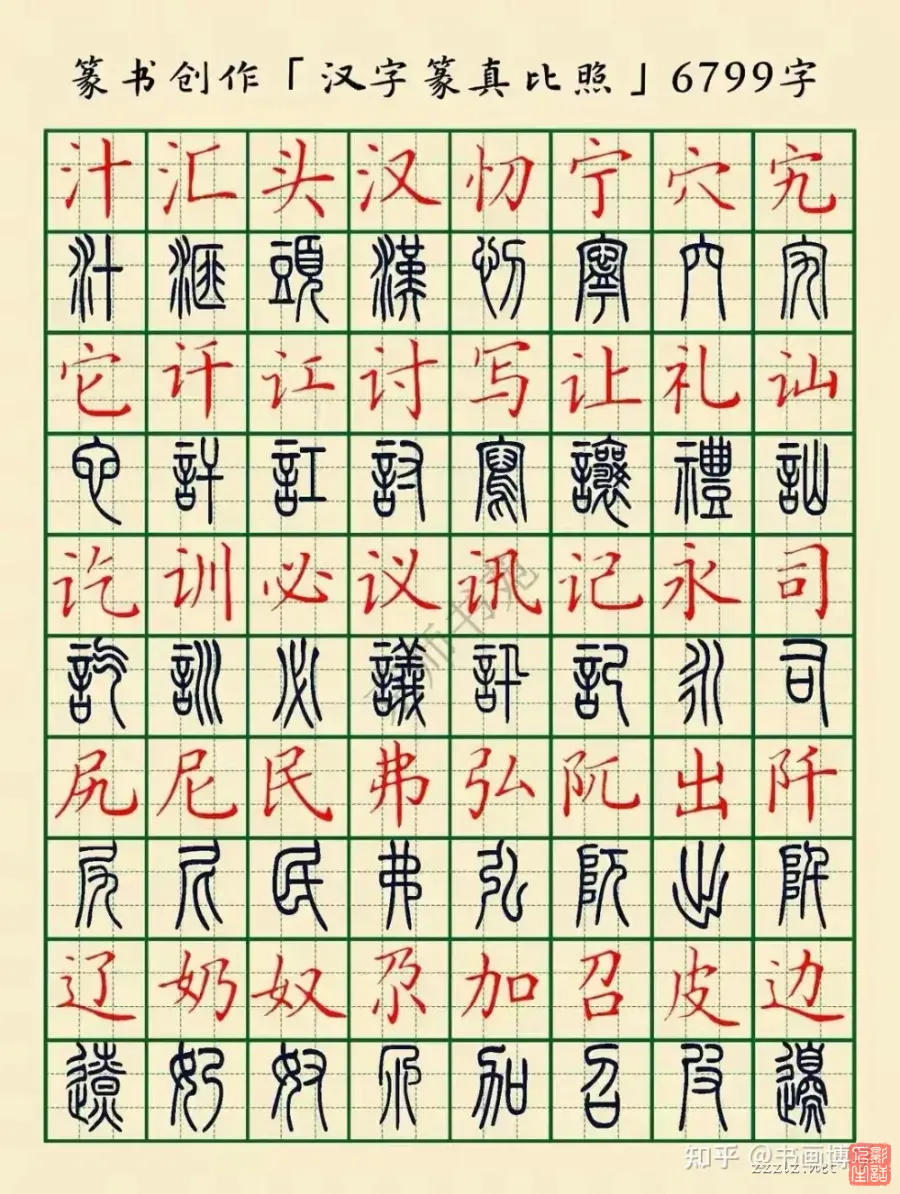 篆书创作「汉字篆真比照」6799字
汁汇头汉忉宁穴宄
汁匯頭漢忉寧穴宄
它讦讧讨写让礼讪
它訐訌討寫讓禮訕
讫训必议讯记永司
訖訓必議訊記永司
尻尼民弗弘阢出阡
尻尼民弗弘阢出阡
辽奶奴尕加召皮边
遼奶奴尕加召皮邊
师书苑
知乎 @书画博
zzzlz.net